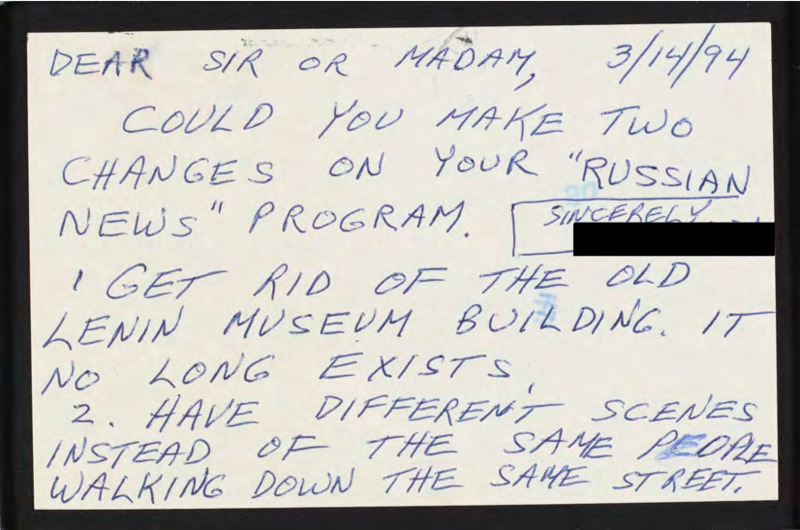 DEAR SIR OR MADAM, 3/14/94
COULD YOU MAKE TWO
CHANGES ON YOUR "RUSSIAN
NEWS" PROGRAM.
SINCERELY
1 GET RID OF THE OLD
LENIN MUSEUM BUILDING. IT
NO LONG EXISTS.
2. HAVE DIFFERENT SCENES
INSTEAD OF THE SAME PEOPLE
WALKING DOWN THE SAME STREET.